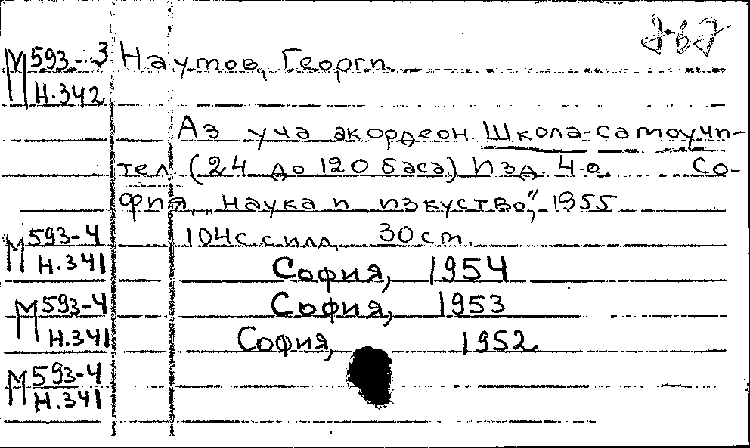 М 593-3 Наумов, Георги
Н.342
Аз уча акордеон Школа-самоучи-
тел (24 до 120 баса) Изд 4-о. Со-
фия, „Наука и изкуство“, 1955
М 593-4 104с. с илл, 30 cm.
Н.341 София, 1954
М 593-4 София, 1953
Н.341 София, 1952
М 593-4
Н.341